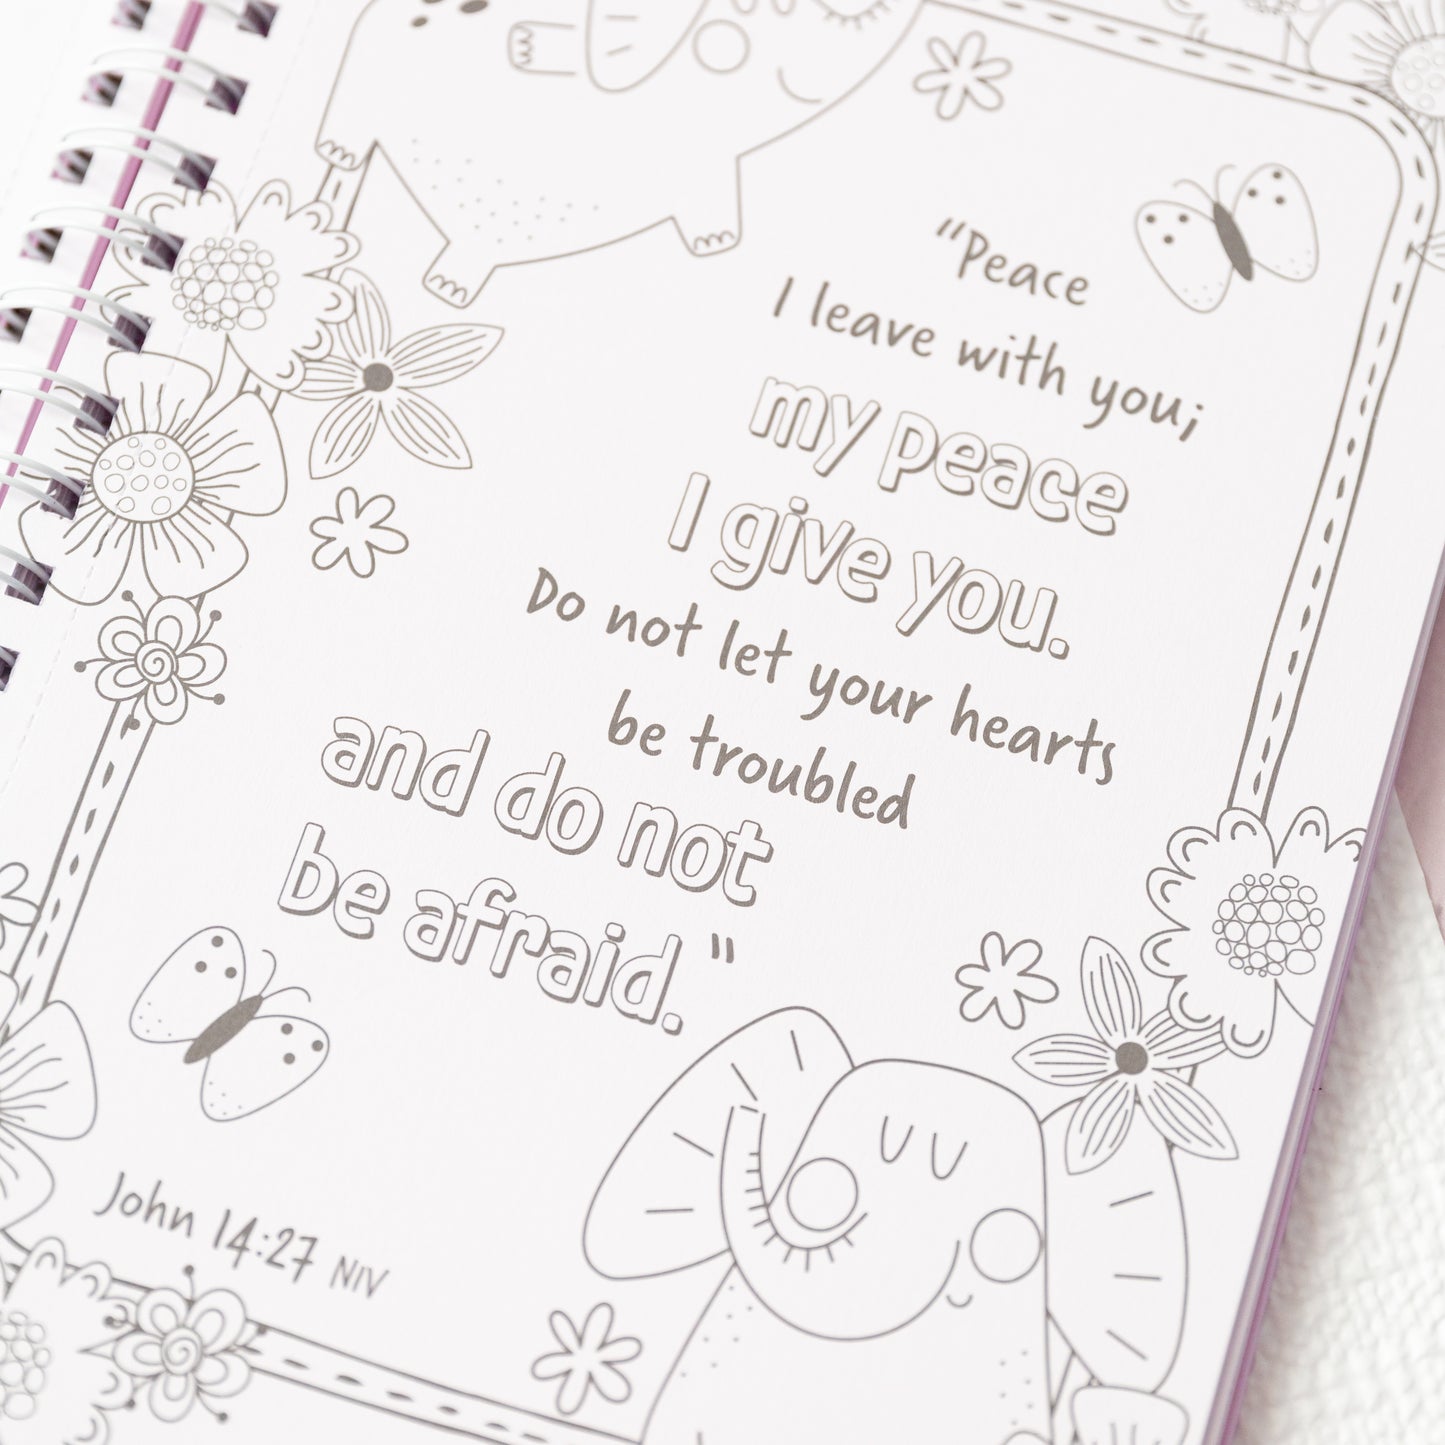 “Peace
I leave with you;
my peace
I give you.
Do not let your hearts
be troubled
and do not
be afraid.”
John 14:27 NIV